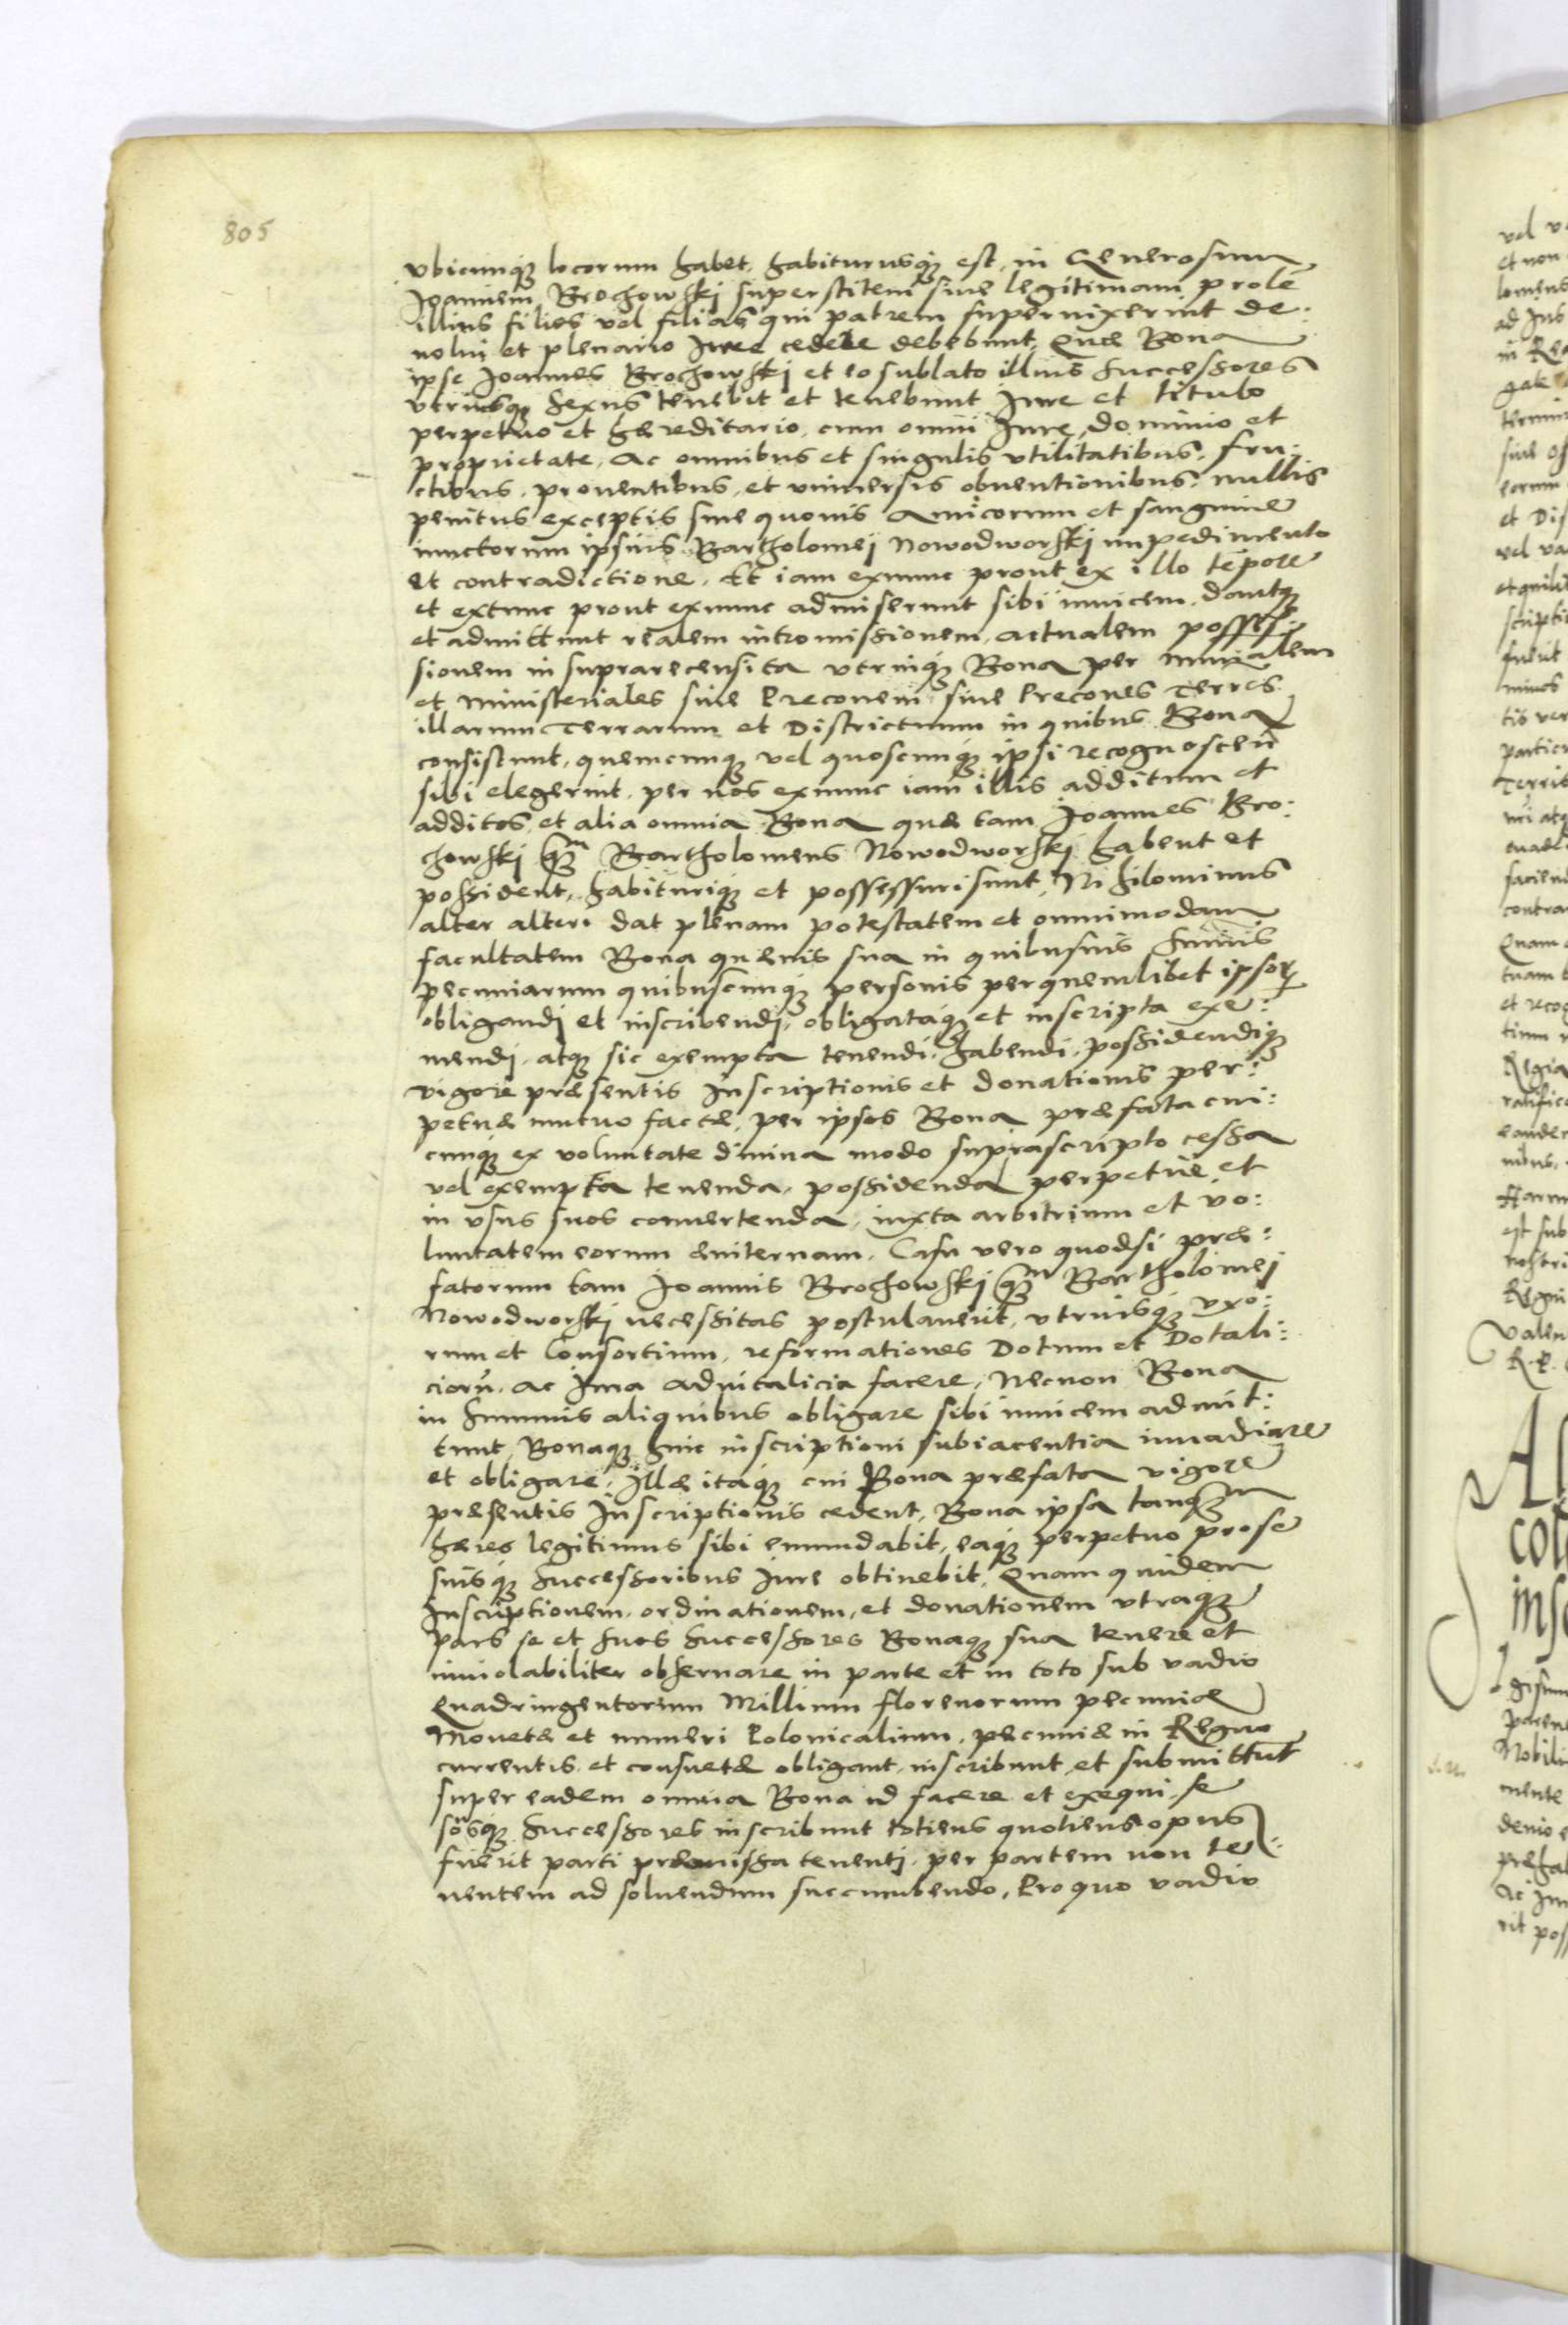 805
vbicunq3 locorum habet, habiturusq3 est, in Generosum
Joannem Brochowskj superstitem siue legitimam prolē
illius filios vel filias qui patrem superuixerint de:
uolui et plenario Jure cedere debebunt, Quæ Bona
ipse Joannes Brochowskj et eo sublato illius Successores
vtriusq3 sexus tenebit et tenebunt Jure et titulo
perpetuo et hæreditario, cum omni Jure, dominio et
proprietate, Ac omnibus et singulis vtilitatibus, fru:
ctibus, prouentibus, et vniuersis obuentionibus, nullis
penitus exceptis sine quouis Amicorum et sanguine
iunctorum ipsius Bartholomej Nowodworskj impedimento
et contradictione. Et iam exnunc prout ex illo tēpore
et extunc prout exnunc admiserunt sibi inuicem, dantq3
et admittunt realem intromissionem, actualem posses:
sionem in suprarecensita vtrinq3 Bona per
et Ministeriales siue Preconem siue Precones Terres
illarum Terrarum et Districtuum in quibus Bona
consistunt, quemcunq3 vel quoscunq3 ipsi recognoscen̄
sibi elegerint, per nos exnunc iam illis additum et
additos, et alia omnia Bona quæ tam Joannes Bro:
chowskj q̃m Bartholomeus Nowodworskj habent et
possident, habituriq3 et possessuri sunt, Nihilominus
alter alteri dat plenam potestatem et omnimodam
facultatem Bona quæuis sua in quibusuis Sum̄is
pecuniarum quibuscunq3 personis per quemlibet ipsor̄
obligandj et inscribendj, obligataq3 et inscripta exi:
mendj, atq3 sic exempta tenendi, habendi, possidendiq3
vigore præsentis Inscriptionis et donationis per:
petuæ mutuo factæ, per ipsos Bona præfata cui:
cunq3 ex voluntate diuina modo suprascripto cessa
vel exempta tenenda, possidenda perpetue et
in vsus suos conuertenda, iuxta arbitrium et vo:
luntatem eorum æuiternam. Casu vero quodsi præ:
fatorum tam Joannis Brochowskj q̃m Bartholomej
Nowodworskj necessitas postulauerit, vtriusq3 vxo:
rum et Consortium, reformationes Dotum et Dotali:
ciorū, Ac Jura aduitalicia facere, Necnon Bona
in Summis aliquibus obligare sibi inuicem admit:
tunt, Bonaq3 huic inscriptioni subiacentia inuadiare
et obligare, Illæ itaq3 cui Bona præfata vigore
præsentis Inscriptionis cedent, Bona ipsa tanq̃m
hæres legitimus sibi emundabit, eaq3 perpetuo pro se
suisq3 Successoribus Jure obtinebit, Quam quidem
Inscriptionem, ordinationem, et donationem vtraq3
pars se et suos Successores Bonaq3 sua tenere et
inuiolabiliter obseruare in parte et in toto sub vadio
Quadringentorum Millium florenorum pecuniæ
Monetæ et numeri Polonicalium, pecuniæ in Regno
currentis, et consuetæ obligant, inscribunt, et submittūt
super eadem omnia Bona id facere et exequi, se
suosq3 Successores inscribunt totiens quotiens opus
fuerit parti præmissa tenentj, per partem non te:
nentem ad soluendum succumbendo, Pro quo vadio